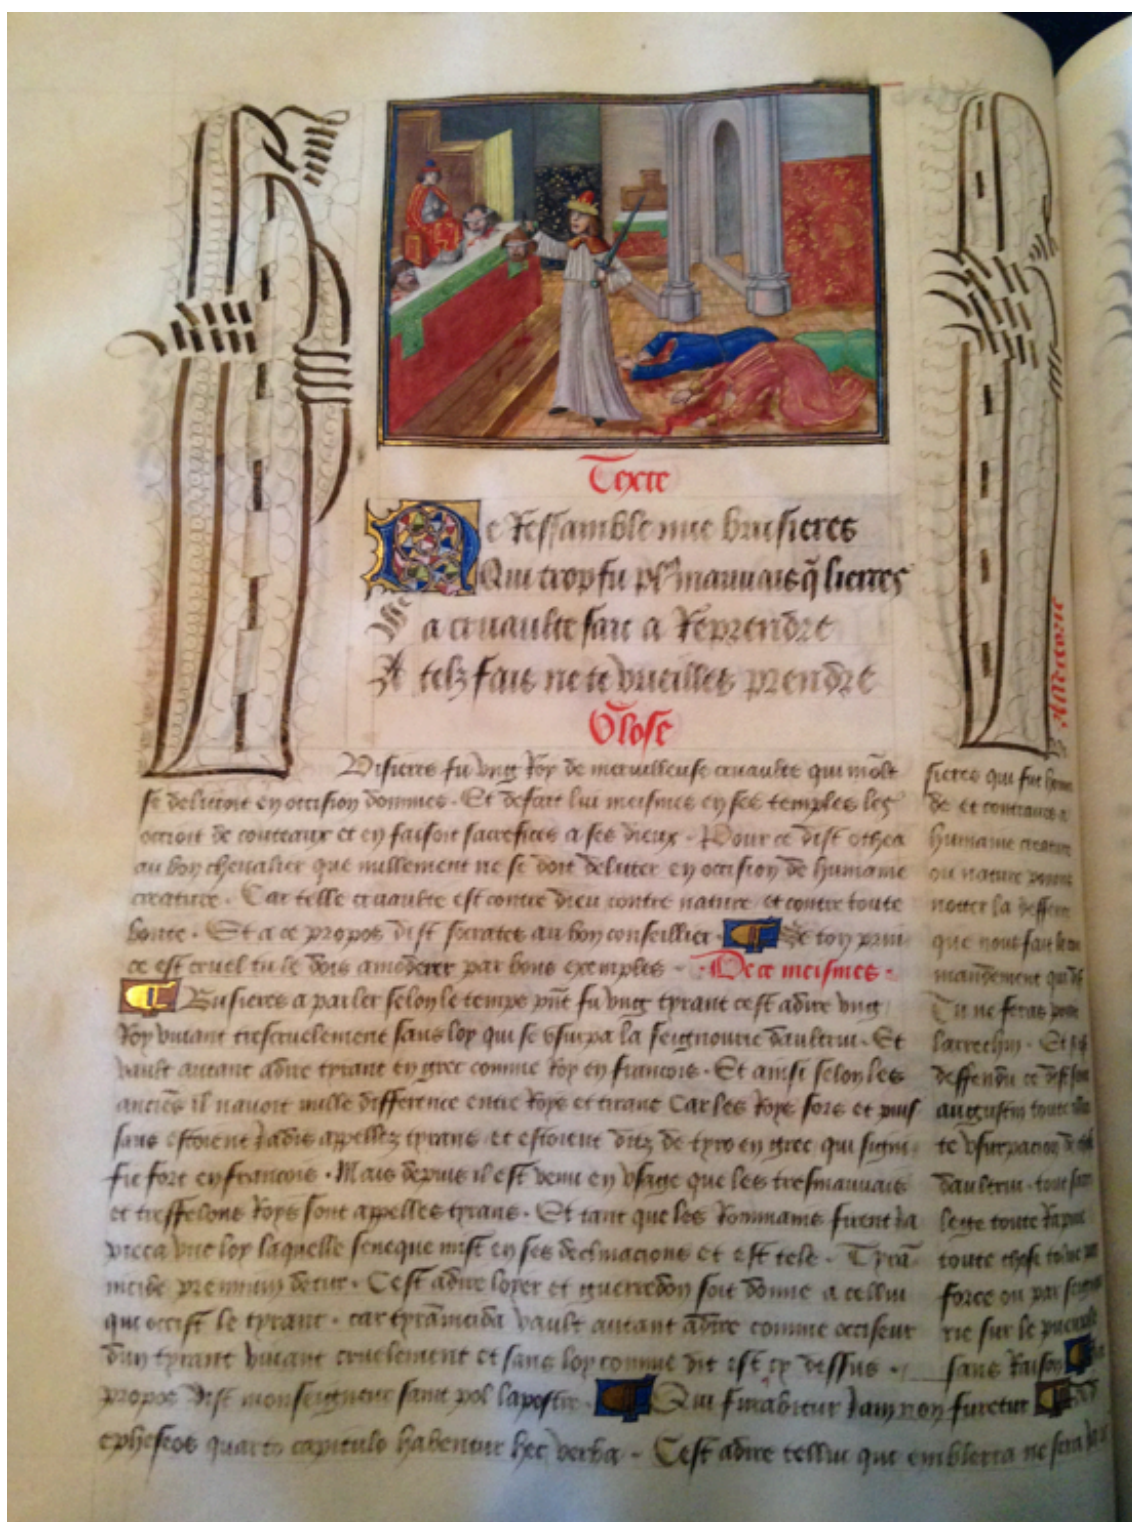 Texte
Ne Ressamble mie busieres
Qui trop fu pl9 mauuais q̃ lierres
Sa cruaulte fait a Reprendre
A telz fais ne te vueilles prendre
Glose
Busieres fu vng Roy de merueilleuse cruaulte qui mo̅lt
se delitoit en occision dommes . Et de fait lui meismes en ses temples les
occioit de couteaux et en faisoit sacrefices a ses dieux . Pour ce dist othea
au bon cheualier que nullement ne se doit deliter en occision de humaine
creature . Car telle cruaulte est contre dieu contre nature et contre toute
bonte . Et a ce propos dist socrates au bon conseillier . Se ton prin
ce est cruel tu le dois amoderer par bons exemples . De ce meismes .
Busieres a parler selon le temps pn̅t fu vng tyrant cest adire vng
Roy viuant trescruelement sans loy qui se vsurpa la seignourie daultrui . Et
vault autant adire tyrant en grec comme Roy en francois . Et ainsi selon les
anciens il nauoit nulle difference entre Roys et tirans Car les Roys fors et puis
sans estoient Jadis appellez tyrans et estoient ditz de tyro en grec qui signi
fie fort en francois . Mais depuis il est venu en vsage que les tresmauuais
et tresfelons Roys sont appelles tyrans . Et tant que les Rommains firent Ja
pieca vne loy laquelle seneque mist en ses declinacions et est tele . Tyra̅
nicide premium detur . Cest adire loyer et guerredon soit donne a cellui
qui occist le tyrant . car tyra̅nicida vault autant adire comme occiseur
dun tyrant viuant cruelement et sans loy comme dit est cy dessus .
propos dist monseigneur saint pol lapostre . Qui furabatur Jam non furetur
epheseos quarto capitulo habentur hec verba . Cest adire cellui que emblera ne sera
Allegorie
sieres qui fut
de et contraire a
humaine creature
ou nature
notter la deffen
que nous fait le
mandement qui dit
Tu ne feras point
larrechin . Et
deffendu ce dist saint
augustin toute
te vsurpacion de
daultrui . tout
lege toute Rapine
toute chose tolue par
force ou par seignou
rie sur le pueple
sans Raison